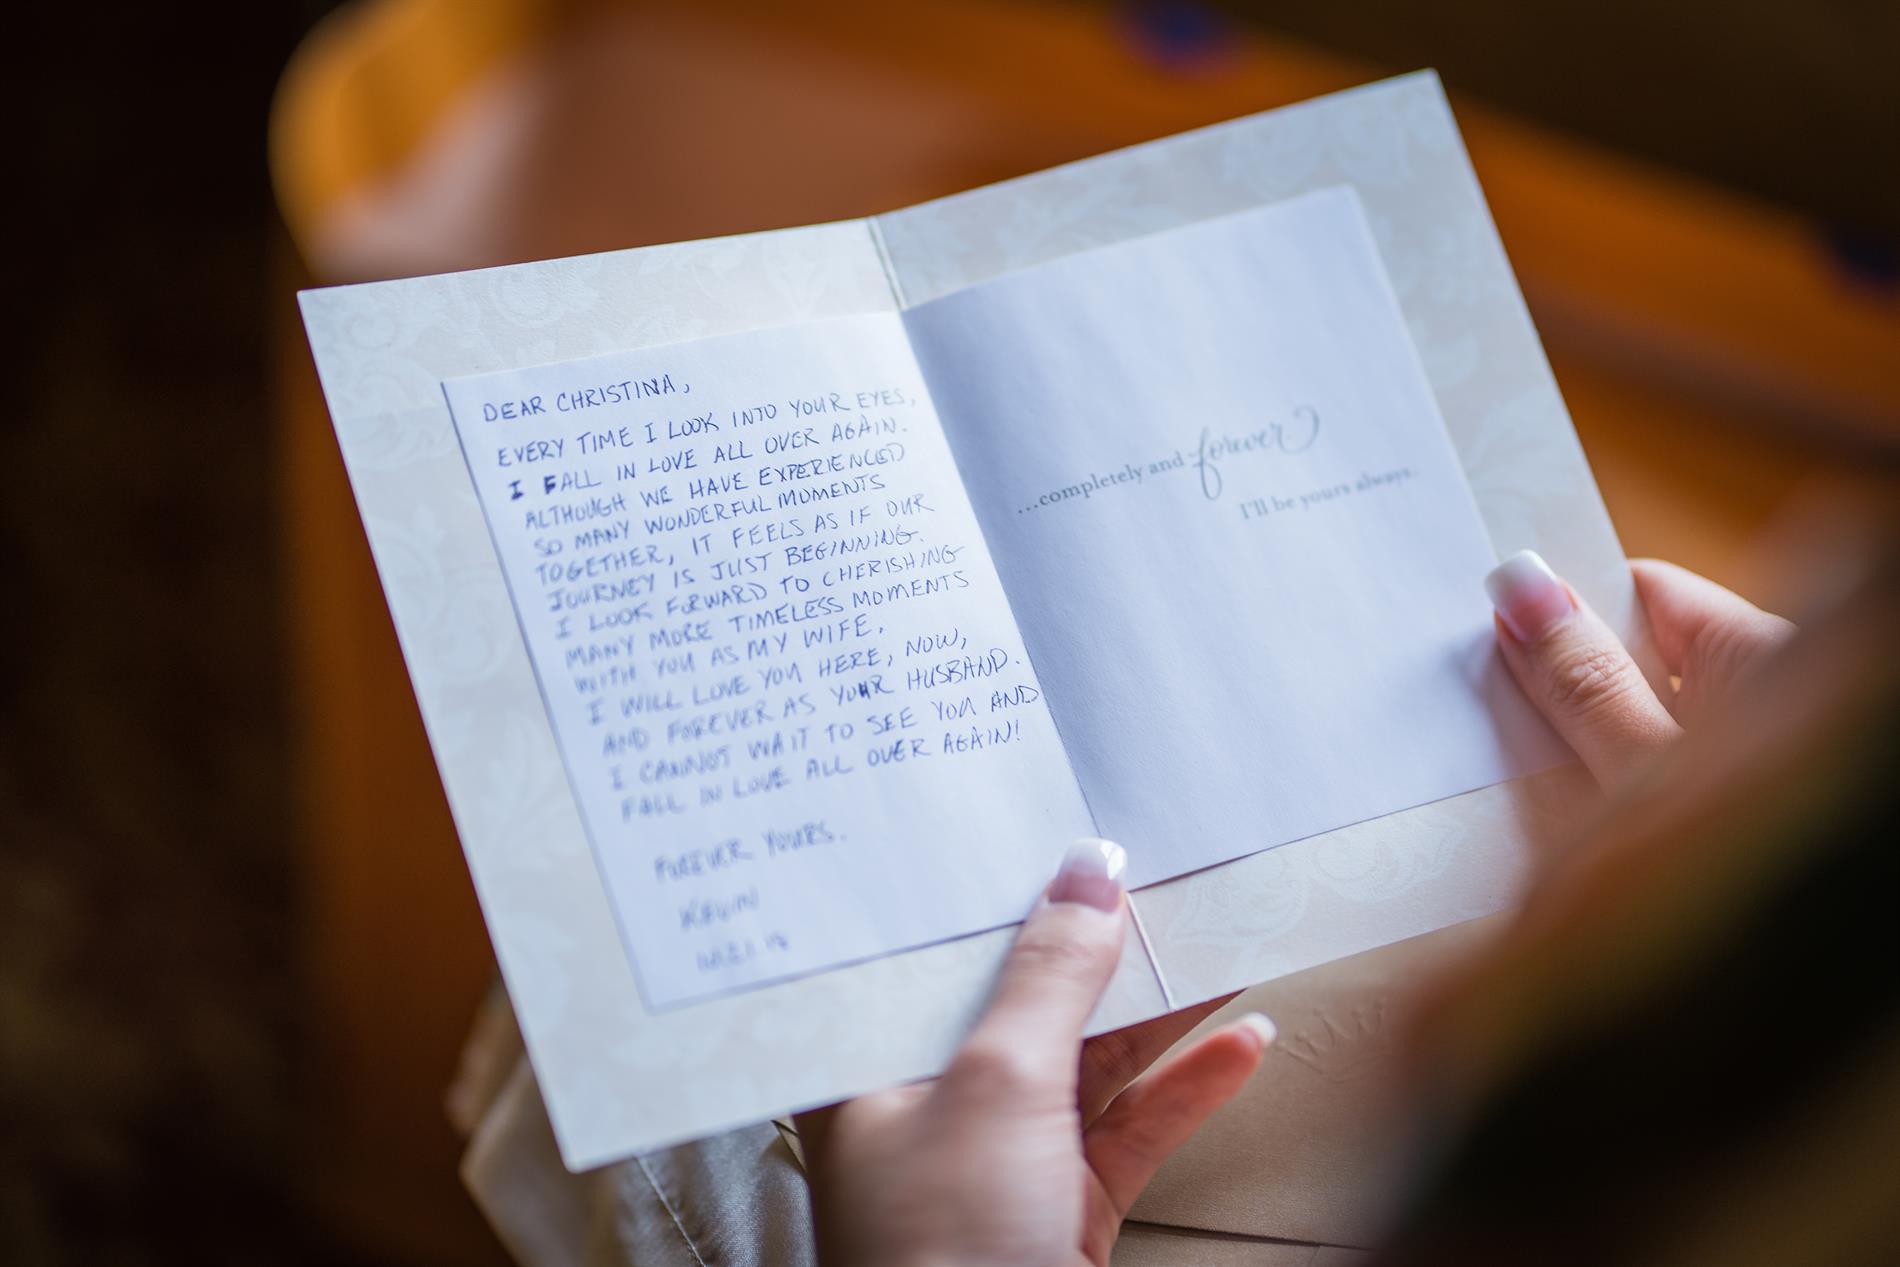 DEAR CHRISTINA,
EVERY TIME I LOOK INTO YOUR EYES,
I FALL IN LOVE ALL OVER AGAIN.
ALTHOUGH WE HAVE EXPERIENCED
SO MANY WONDERFUL MOMENTS
TOGETHER, IT FEELS AS IF OUR
JOURNEY IS JUST BEGINNING.
I LOOK FORWARD TO CHERISHING
MANY MORE TIMELESS MOMENTS
WITH YOU AS MY WIFE.
I WILL LOVE YOU HERE, NOW,
AND FOREVER AS YOUR HUSBAND.
I CANNOT WAIT TO SEE YOU AND
FALL IN LOVE ALL OVER AGAIN!
FOREVER YOURS.
KEVIN
...completely and forever
I'll be yours always.